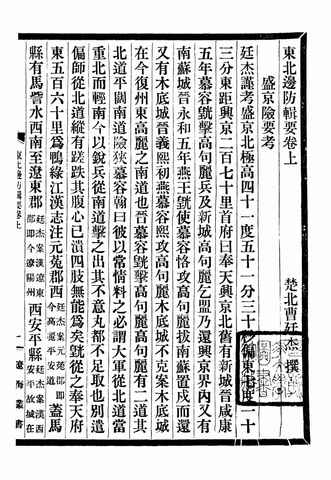 東北邊防輯要卷上
楚北曹廷杰撰
盛京險要考
廷杰謹考盛京北極高四十一度五十一分三十秒偏東七度一十
三分東距興京二百七十里首府曰奉天興京北舊有新城晉咸康
五年慕容皝擊高句麗兵及新城高句麗乞盟乃還興京界内又有
南蘇城晉永和五年燕王皝使慕容恪攻高句麗拔南蘇置戍而還
又有木底城晉義熙初燕慕容熙攻高句麗木底城不克案木底城
在今復州東高麗之南道也晉慕容皝擊高句麗高句麗有二道其
北道平闊南道險狹慕容翰曰彼以常情料之必謂大軍從北道當
重北而輕南今以銳兵從南道擊之出其不意丸都不足取也別遣
偏師從北道縱有蹉跌其腹心已潰四肢無能爲矣皝從之奉天府
東五百六十里爲鴨綠江漢志注元菟郡西
廷杰案元菟郡即
今高麗平安道
蓋馬
縣有馬訾水西南至遼東郡
廷杰案漢遼東
郡即今遼陽州
西安平縣
廷杰案漢西
安平故城在
東北邊防輯要卷上
一
遼海叢書